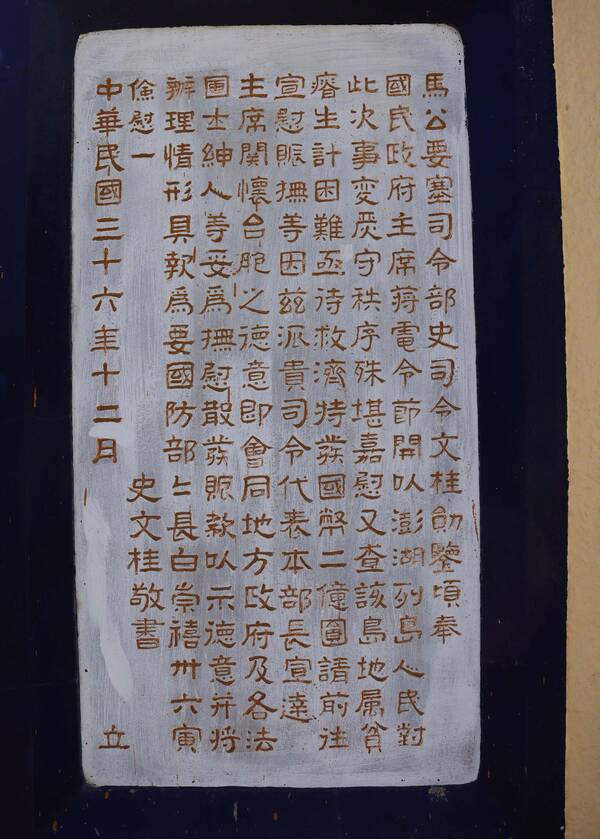 馬公要塞司令部史司令文桂勛鑒頃奉
國民政府主席蔣電令節開以澎湖列島人民對
此次事変炭守秩序殊堪嘉慰又查該島地属貧
瘠生計困難亟待救濟特發國幣二億圓請前往
宣慰賑撫等因兹派貴司令代表本部長宣達
主席関懷台胞之德意即會同地方政府及各法
團士紳人等妥為撫慰散發賑款以示德意并将
辦理情形具報為要國防部部長白崇禧卅六寅
徐慰一 史文桂敬書
中華民國三十六年十二日 立